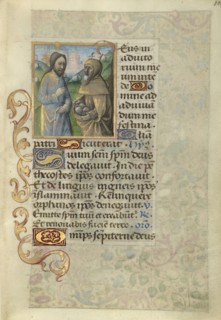 Eus in
adiuto
rium me
um inte
de Do
mine ad
adiuuā
dum me
festina
Gloria
patri Sicut erat
Suum sem spm deus
delegauit In die pe
thecostes ipos confortauit
Et de linguis igneis ipos
inflammauit Relinquere
orphanos ipos denegauit
Emitte spm tuū et creabūt
Et renouabis faciē terre
mnips sempiterne deus